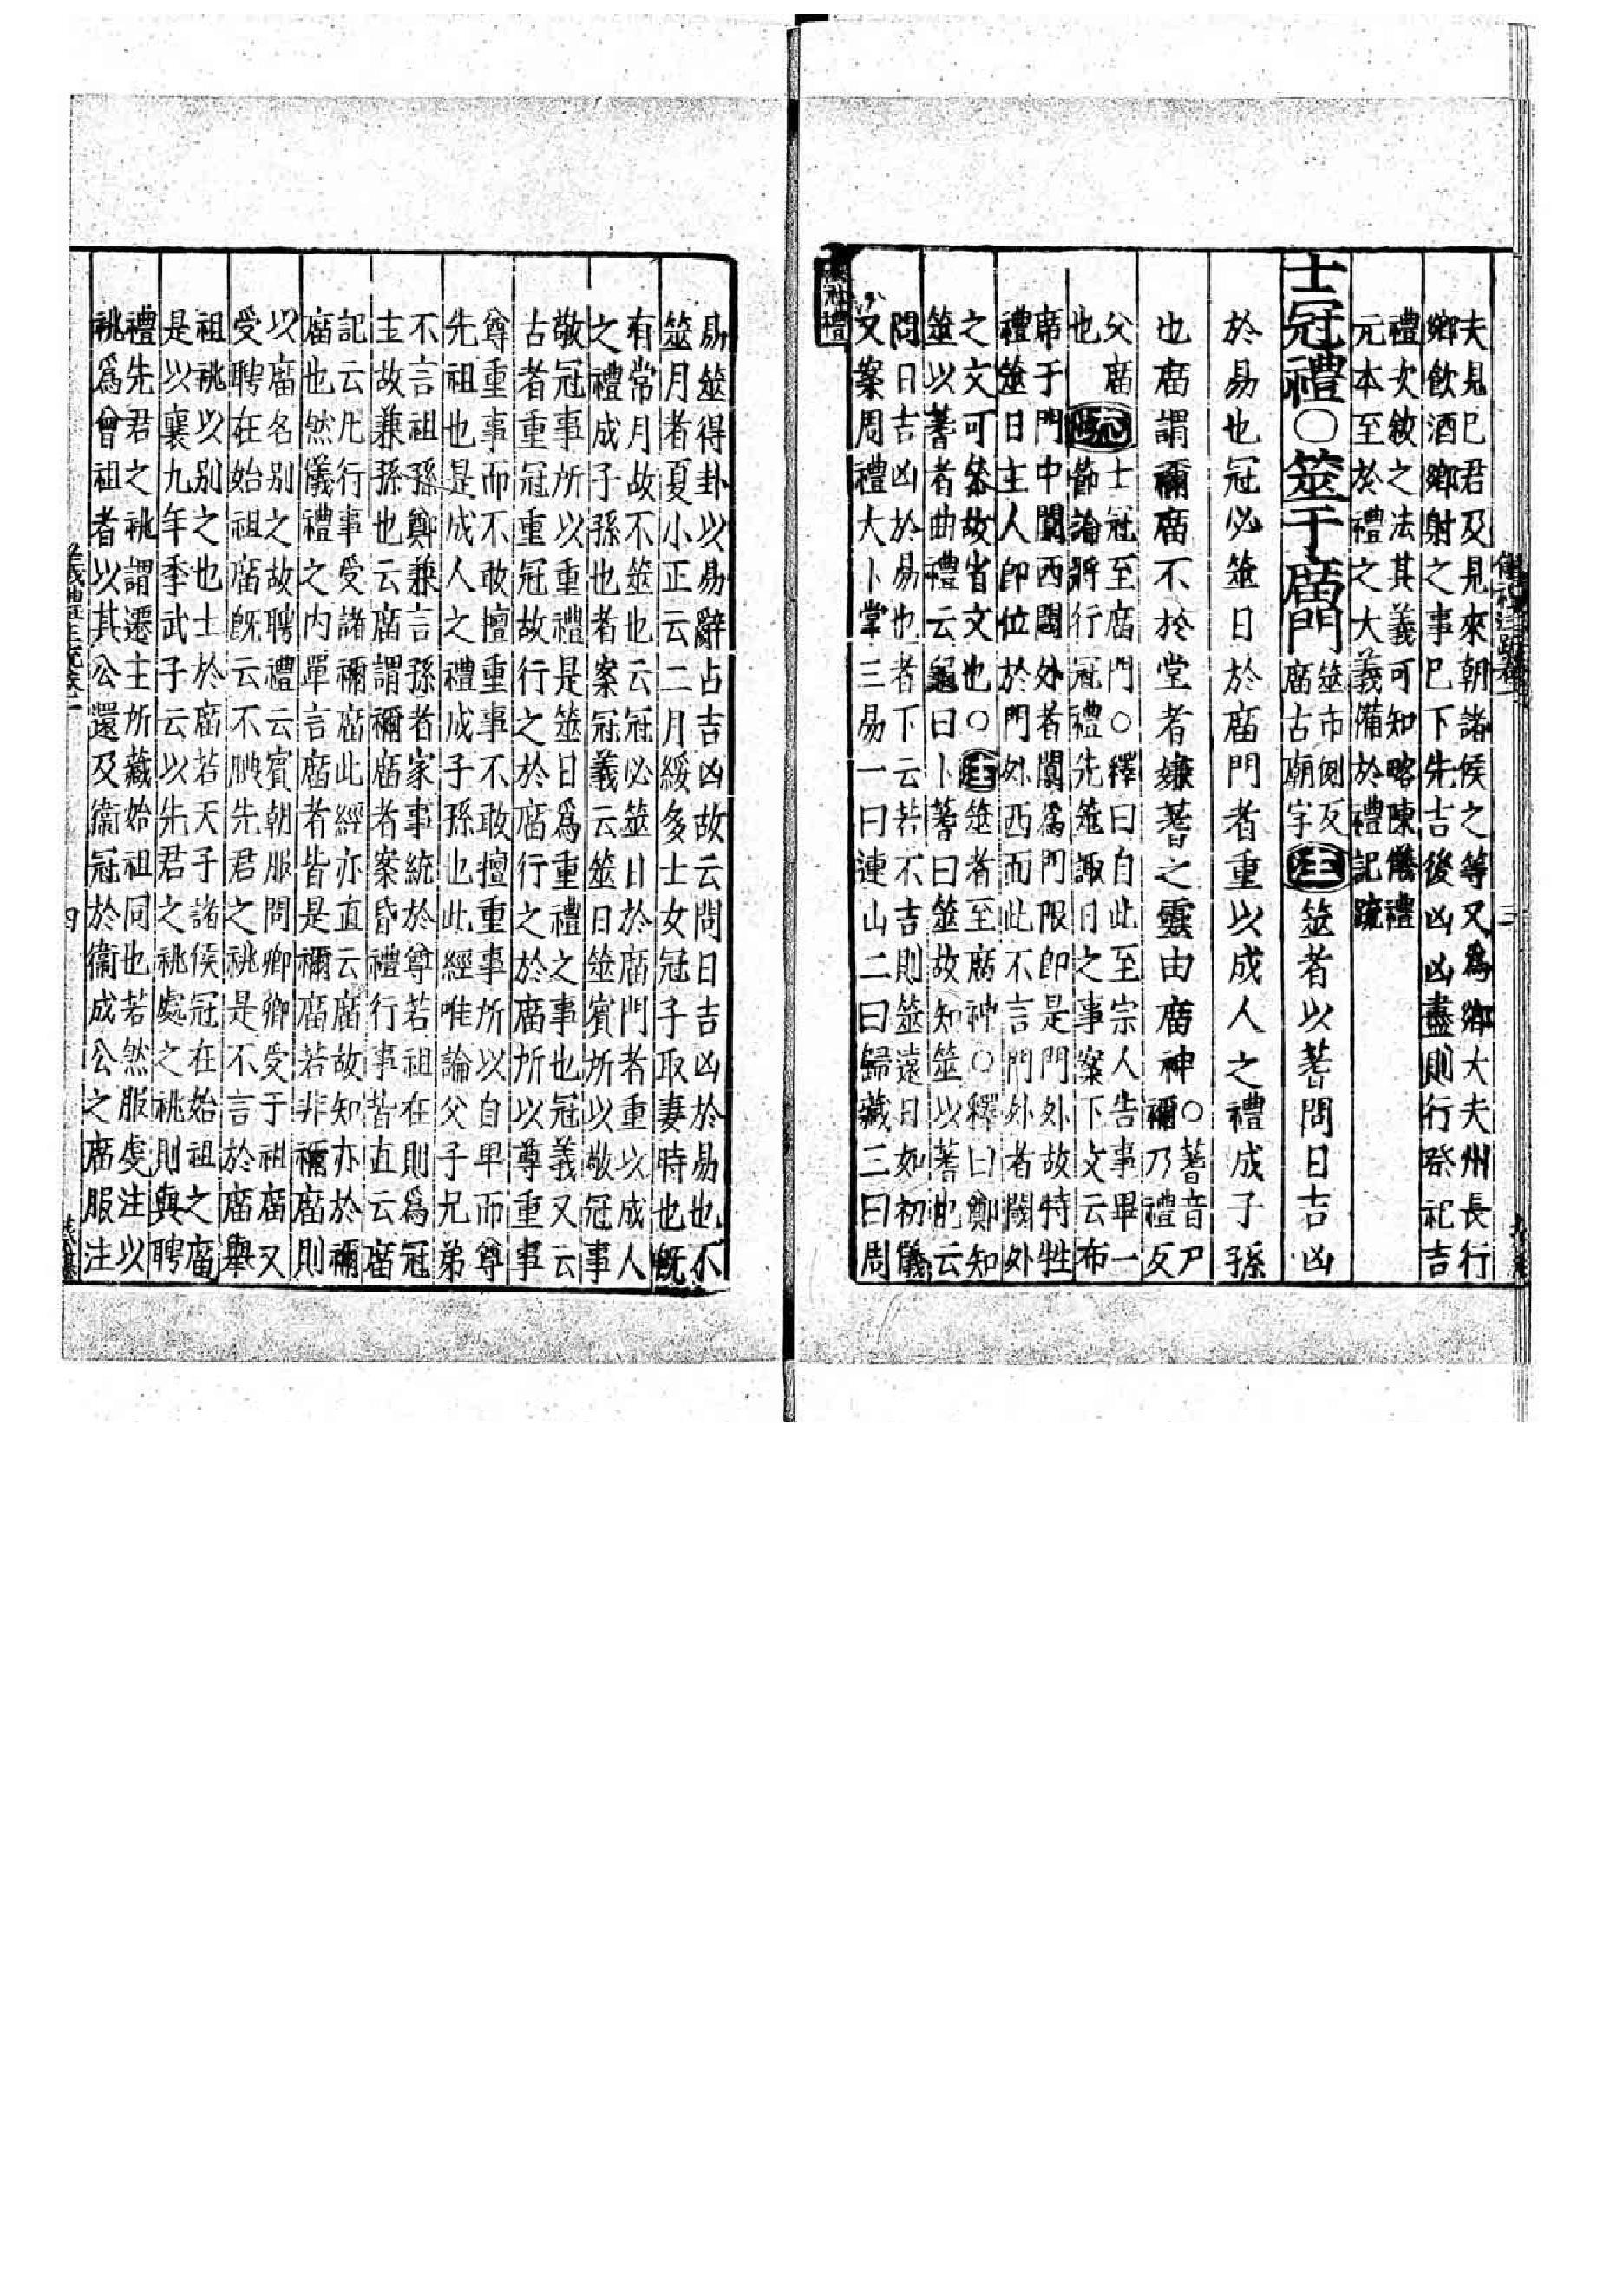 夫見已君及見來朝諸侯之等又爲鄉大夫州長行
鄉飲酒鄉射之事已下先吉後凶凶盡則行祭祀吉
禮次敘之法其義可知略陳儀禮
元本至於禮之大義備於禮記疏
士冠禮○筮于庿門
筮市例反
庿古廟字
注筮者以蓍問日吉凶
於易也冠必筮日於庿門者重以成人之禮成子孫
也庿謂禰庿不於堂者嫌蓍之靈由庿神
○蓍音尸
禰乃禮反
父庿
也
疏
士冠至庿門○釋曰自此至宗人告事畢一
節論將行冠禮先筮諏日之事案下文云布
席于門中闑西閾外者闑爲門限即是門外故特牲
禮筮日主人即位於門外西面此不言門外者閾外
之文可參故省文也○注筮者至庿神○釋曰鄭知
筮以蓍者曲禮云龜曰卜蓍曰筮故知筮以蓍也云
問日吉凶於易也者下云若不吉則筮遠日如初儀
又案周禮大卜掌三易一曰連山二曰歸藏三曰周
易筮得卦以易辭占吉凶故云問日吉凶於易也不
筮月者夏小正云二月綏多士女冠子取妻時也既
有常月故不筮也云冠必筮日於庿門者重以成人
之禮成子孫也者案冠義云筮日筮賓所以敬冠事
敬冠事所以重禮是筮日爲重禮之事也冠義又云
古者重冠重冠故行之於庿行之於庿所以尊重事
尊重事而不敢擅重事不敢擅重事所以自卑而尊
先祖也是成人之禮成子孫也此經唯論父子兄弟
不言祖孫鄭兼言孫者家事統於尊若祖在則爲冠
主故兼孫也云庿謂禰庿者案昏禮行事皆直云庿
記云凡行事受諸禰庿此經亦直云庿故知亦於禰
庿也然儀禮之內單言庿者皆是禰庿若非禰庿則
以庿名別之故聘禮云賓朝服問卿卿受于祖庿又
受聘在始祖庿既云不腆先君之祧是不言於庿舉
祖祧以別之也士於庿若天子諸侯冠在始祖之庿
是以襄九年季武子云以先君之祧處之祧則與聘
禮先君之祧謂遷主所藏始祖同也若然服虔注以
祧爲曾祖者以其公還及衞冠於衞成公之庿服注
四